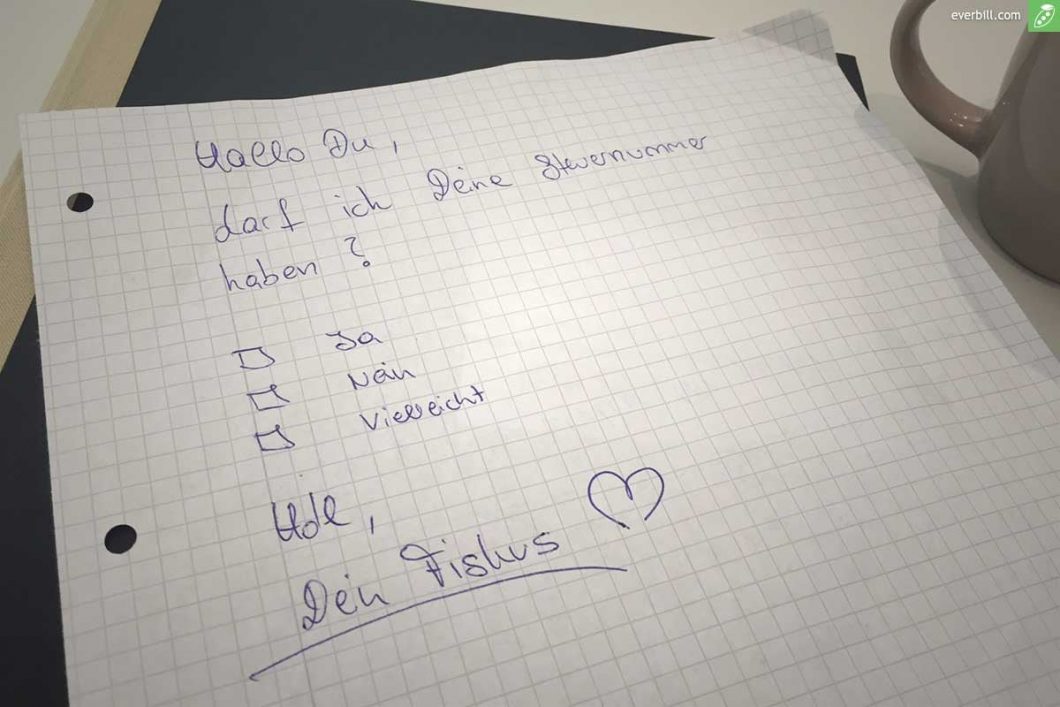 everbill.com
Hallo Du,
darf ich Deine Steuernummer
haben?
Ja
Nein
Vielleicht
Hdl,
Dein Fiskus